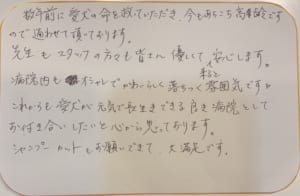 数年前に愛犬の命を救っていただき、今もあちこち高年齢です
ので通わせて頂いております。
先生もスタッフの方々も皆さん優しくて安心します。
病院内もオシャレでかわいらしく落ちつく雰囲気です。
これからも愛犬が元気で長生きできる良き病院として
お付き合いしたいと心から思っております。
シャンプーカットもお願いできて、大満足です。